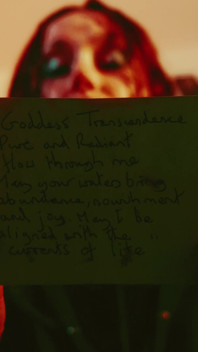 Goddess Transcendence
Pure and Radient
flow through me
may your waters bring
abundance, nourishment
and joy May I be
aligned with the
currents of life